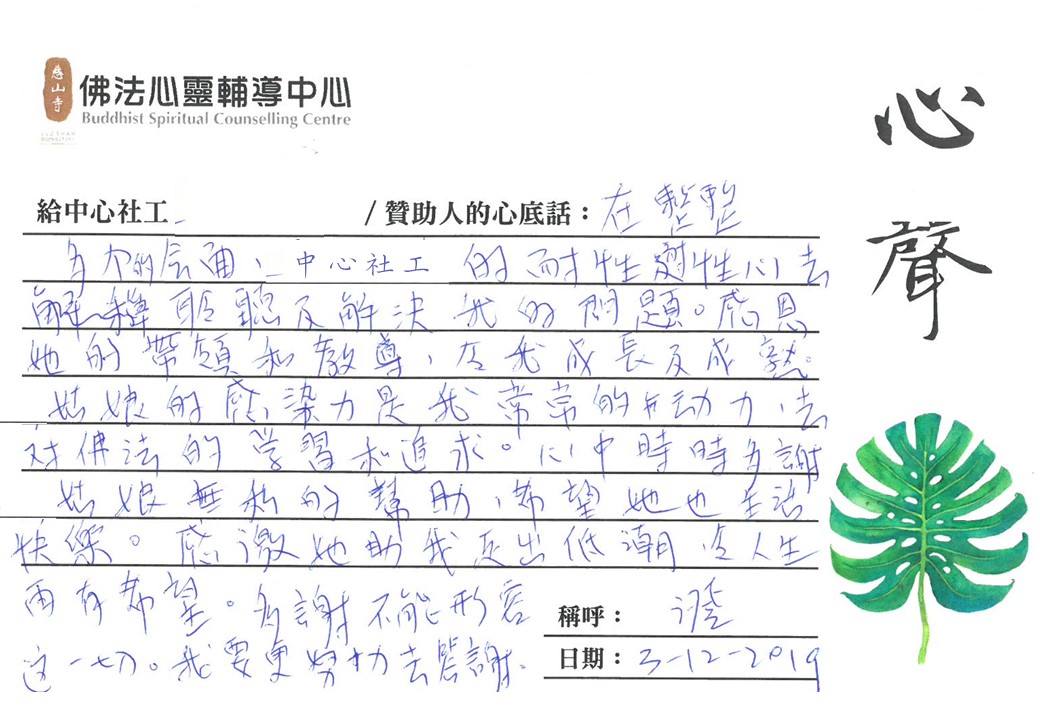 慈山寺
佛法心靈輔導中心
Buddhist Spiritual Counselling Centre
心聲
給中心社工 / 贊助人的心底話：在整整
多个的会面、中心社工 的耐性對性心去
解釋聆聽及解決我的問題。感恩
她的帶領和教導，令我成長及成熟。
姑娘的感染力是我常常的动力，去
对佛法的学習和追求。心中時時多謝
姑娘無私的幫助，希望她也生活
快樂。感激她助我走出低潮，令人生
再有希望。多謝不能形容
这一切。我要更努力去答謝。
稱呼：澄
日期：3-12-2019